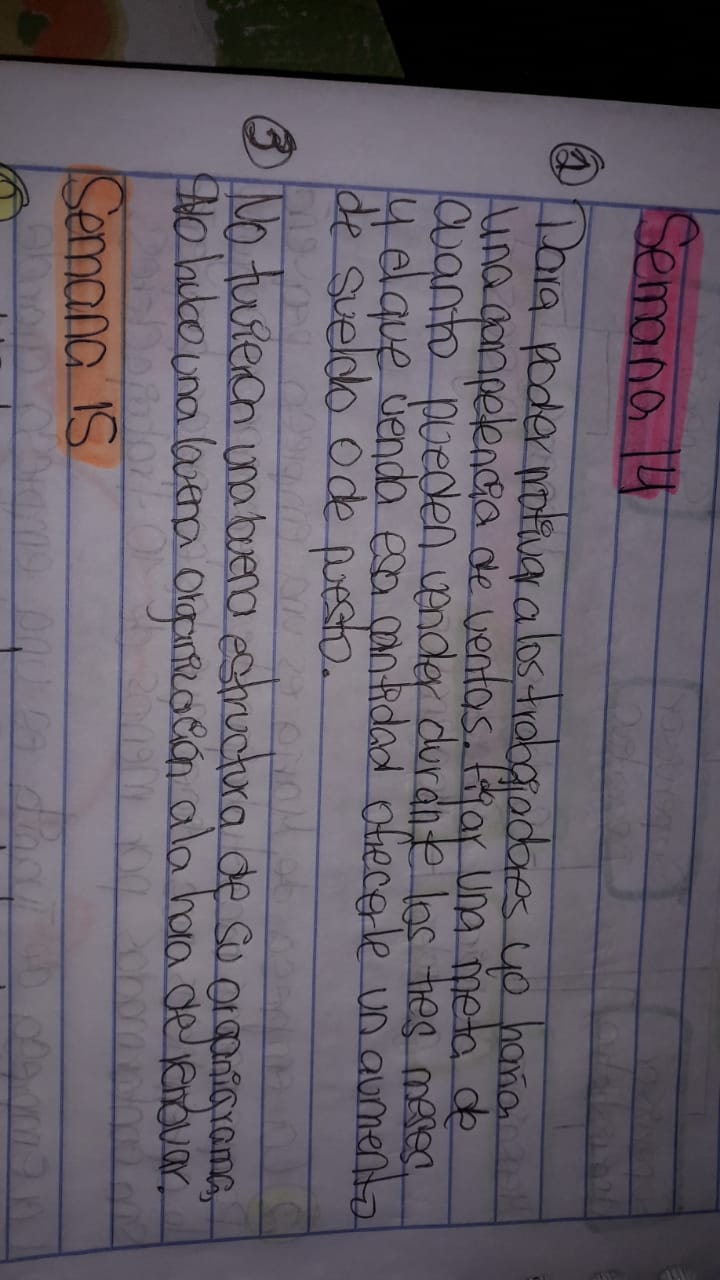 Semana 14
② Para poder motivar a los trabajadores yo haría
una competencia de ventas. fijar una meta de
cuanto pueden vender durante los tres meses,
y el que venda esa cantidad ofrecerle un aumento
de sueldo o de puesto.
③ No tuvieron una buena estructura de su organigrama,
No hubo una buena organización a la hora de renovar.
Semana 15